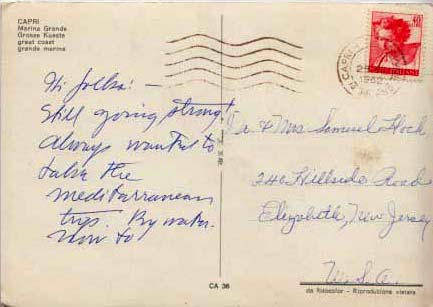 CAPRI
Marina Grande
Grosse Kueste
great coast
grande marina
Hi folks! —
Still going strong!
Always wanted to
take the
mediterranean
trip. By water.
Now to
& Mrs Samuel
240 Hillside Road
Elizabeth, New Jersey
U.S.A.
CAPRI
ITALIANE
CA 36
da fotocolor - Riproduzione vietata